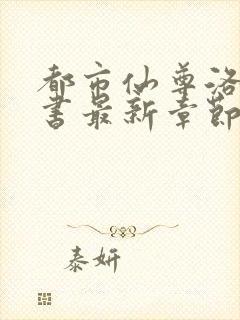 都市仙尊洛
书最新章节
泰妍